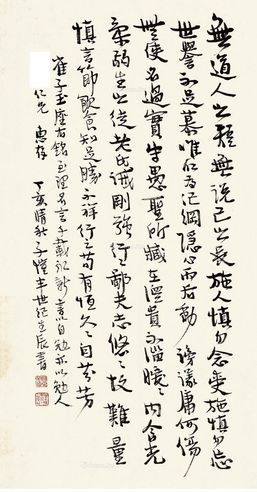 無道人之短無說己之長施人慎勿念受施慎勿忘
世譽不足慕唯仁為紀綱隱心而後動謗議庸何傷
無使名過實守愚聖所臧在涅貴不淄曖曖內含光
柔弱生之徒老氏誡剛強行行鄙夫志悠悠故難量
慎言節飲食知足勝不祥行之苟有恆久久自芬芳
崔子玉座右銘至理名言千載猶新書以自勉亦以勉人
仁兄惠存
丁亥晴秋子愷